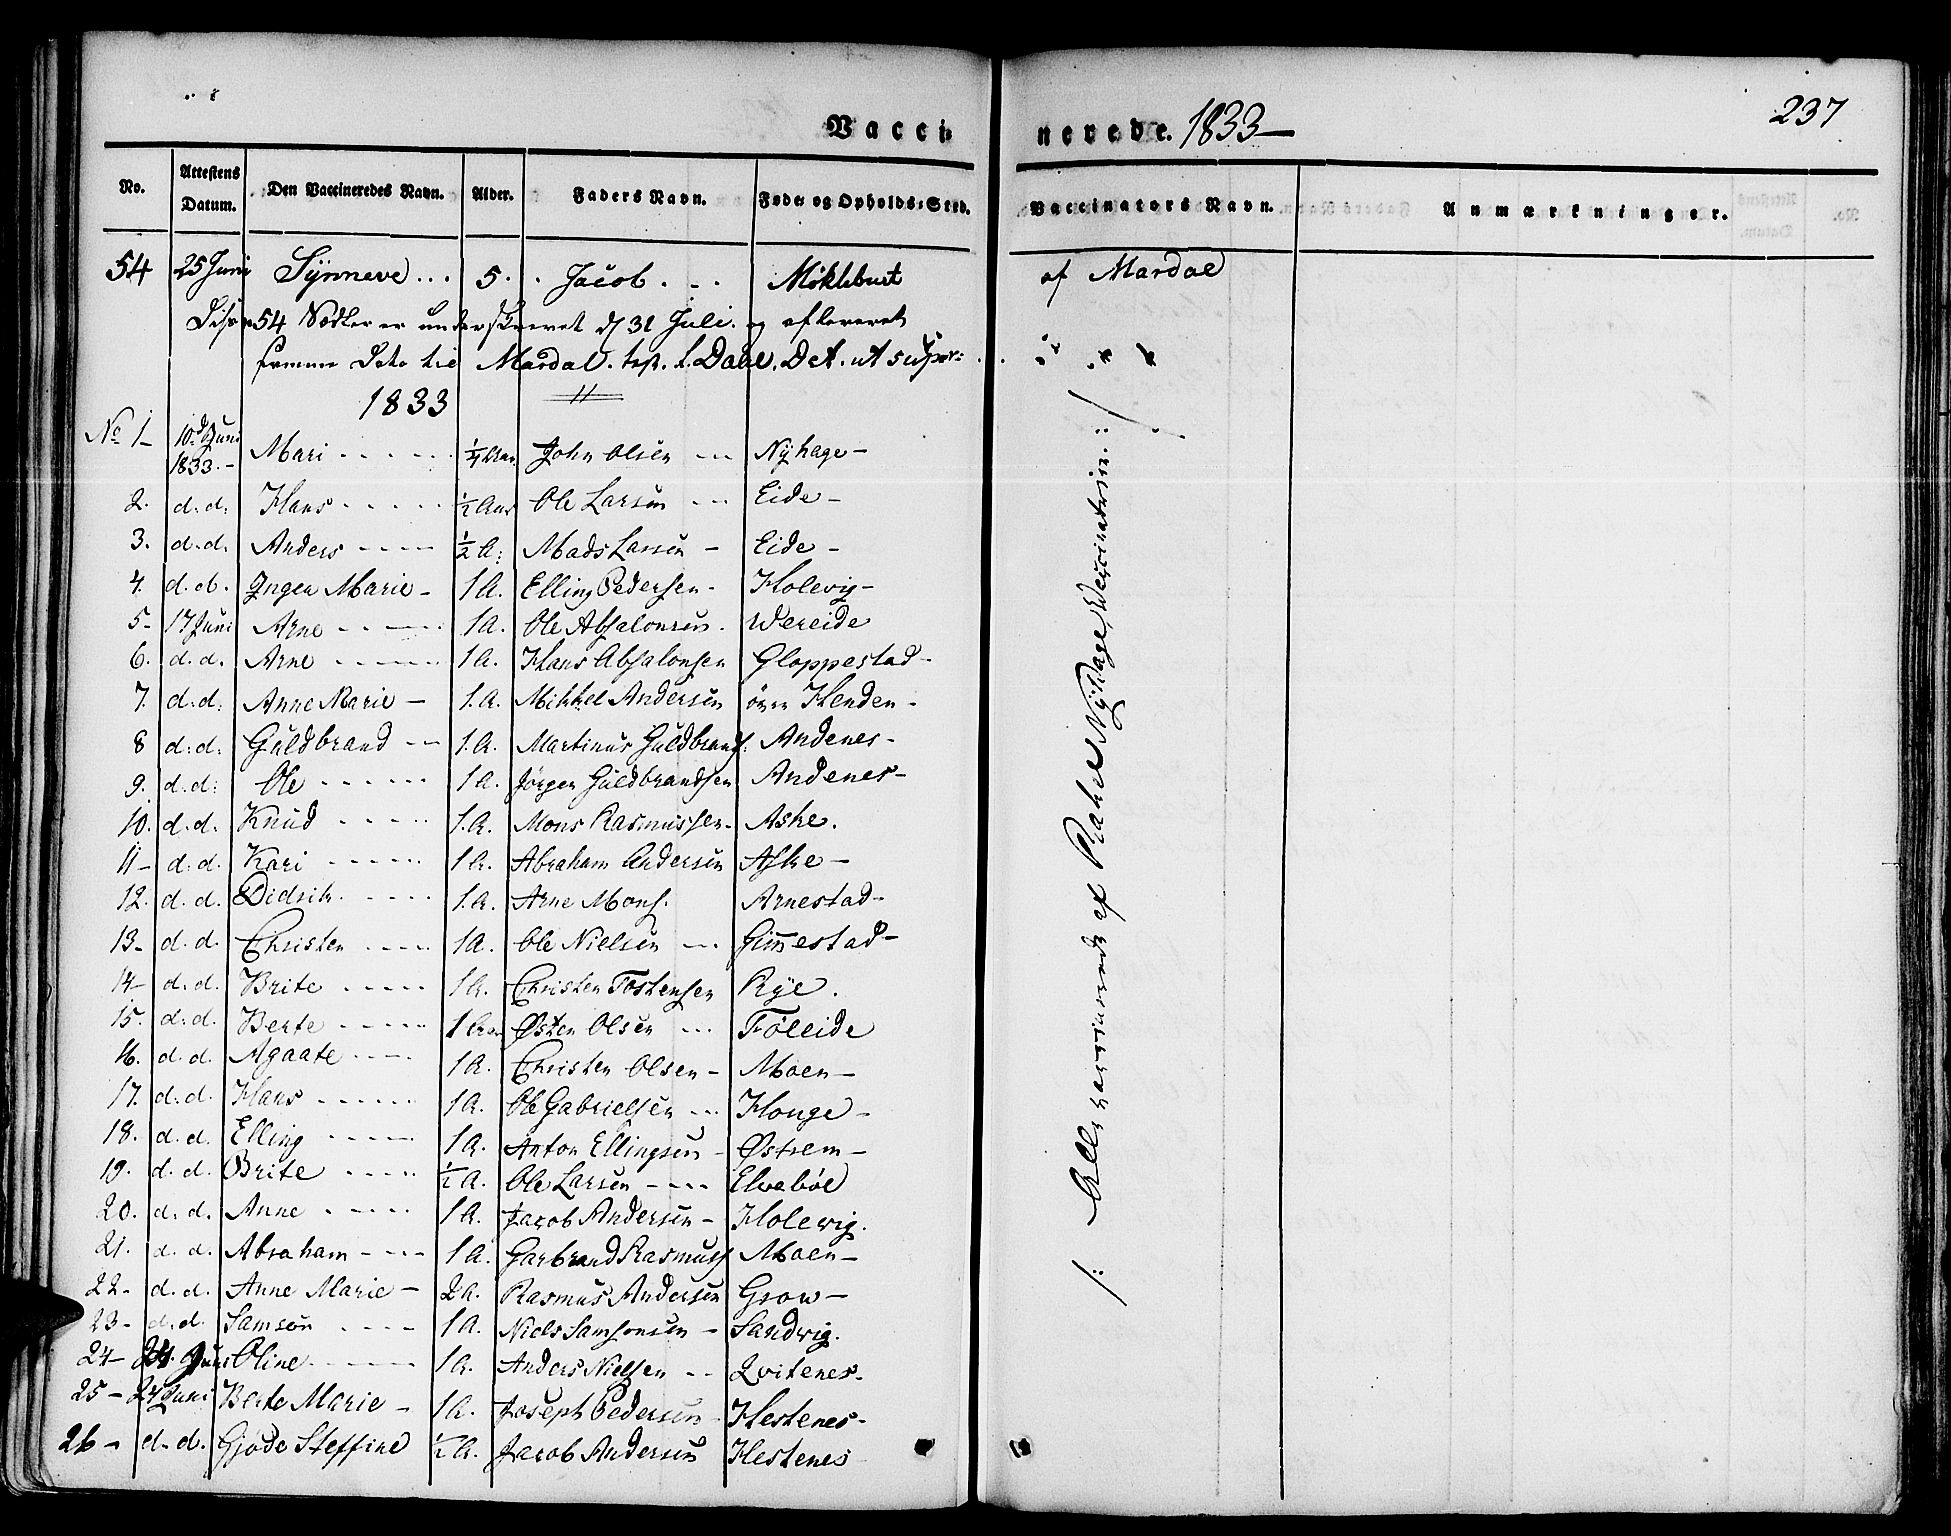 Vaccinerede. 1833—
237
No. Attestens Datum. Den Vaccineredes Navn. Alder. Faders Navn. Føde- og Opholds-Sted. Vaccinators Navn. Anmærkninger.
54 25 Juni Synneve . . . 5 . . Jacob . . . Møklebust af Mardal
54 Sedler er underskrevet d 31 Juli. og afleveret
samme Mardal. Dahl. Det. ut supr:
1833
No 1— 10d Juni 1833.— Mari - - - - - ¼ Aar John Olsen - - Nyhage—
2. d: d: Hans - - - - - ½ Aar Ole Larsen - - - Eide—
3. d. d. Anders - - - - ½ A: Mads Larsen — Eide—
4. d. d. Ingen Marie— 1 A. Elling Pedersen— Holevig—
5— 17 Juni Arne - - - - 1 A. Ole Absalonsen. Wereide
6. d. d. Arne - - - - - 1 A. Hans Absalonsen Gloppestad—
7. d: d: Anne Marie— 1. A. Mikkel Andersen övre Henden—
8 d: d: Guldbrand - - 1. A. Martinus Guldbrands. Andenes—
9. d. d: Ole - - - - - 1 A. Jörgen Guldbrandsen Andenes—
10. d. d. Knud - - - - 1. A. Mons Rasmussen— Aske.
11— d: d: Kari - - - - - 1 A. Abraham Andersen Aske—
12. d. d. Didrik. - - - - 1. A. Arne Mons. Arnestad—
13— d. d. Christen - - - - 1 A. Ole Nielsen - - - Gimmestad—
14— d. d. Brite - - - - - 1 A. Christen Tostensen Rye.
15. d: d. Berte - - - - - 1 Aar Østen Olsen - - - Föleide
16. d: d. Agaate - - - - 1 A. Christen Olsen— Moen—
17. d: d. Hans - - - - - - 1 A. Ole Gabrielsen - - - Honge—
18. d. d. Elling - - - - - 1 A. Anton Ellingsen— Østrem—
19. d. d. Brite - - - - - ½ A. Ole Larsen - - - - Elvebøe
20. d. d. Anne - - - - - 1 A. Jacob Andersen— Holevig.
21. d. d. Abraham - - - - 1 A. Garbrand Rasmuss Moen—
22— d. d. Anne Marie— 2 A. Rasmus Andersen Grow—
23— d. d. Samson - - - - 1 A. Niels Samsonsen— Sandvig.
24— 24. Juni Oline - - - - - 1 A. Anders Nielsen - - Qvitenes—
25— 24 Juni Berte Marie— 1 A. Joseph Pedersen— Hestenes—
26— d. d. Gjøde Steffine ½ A. Jacob Andersen Hestenes
/: Alle vaccinerede af Rahel Nyhage, Vaccinatrice. :/